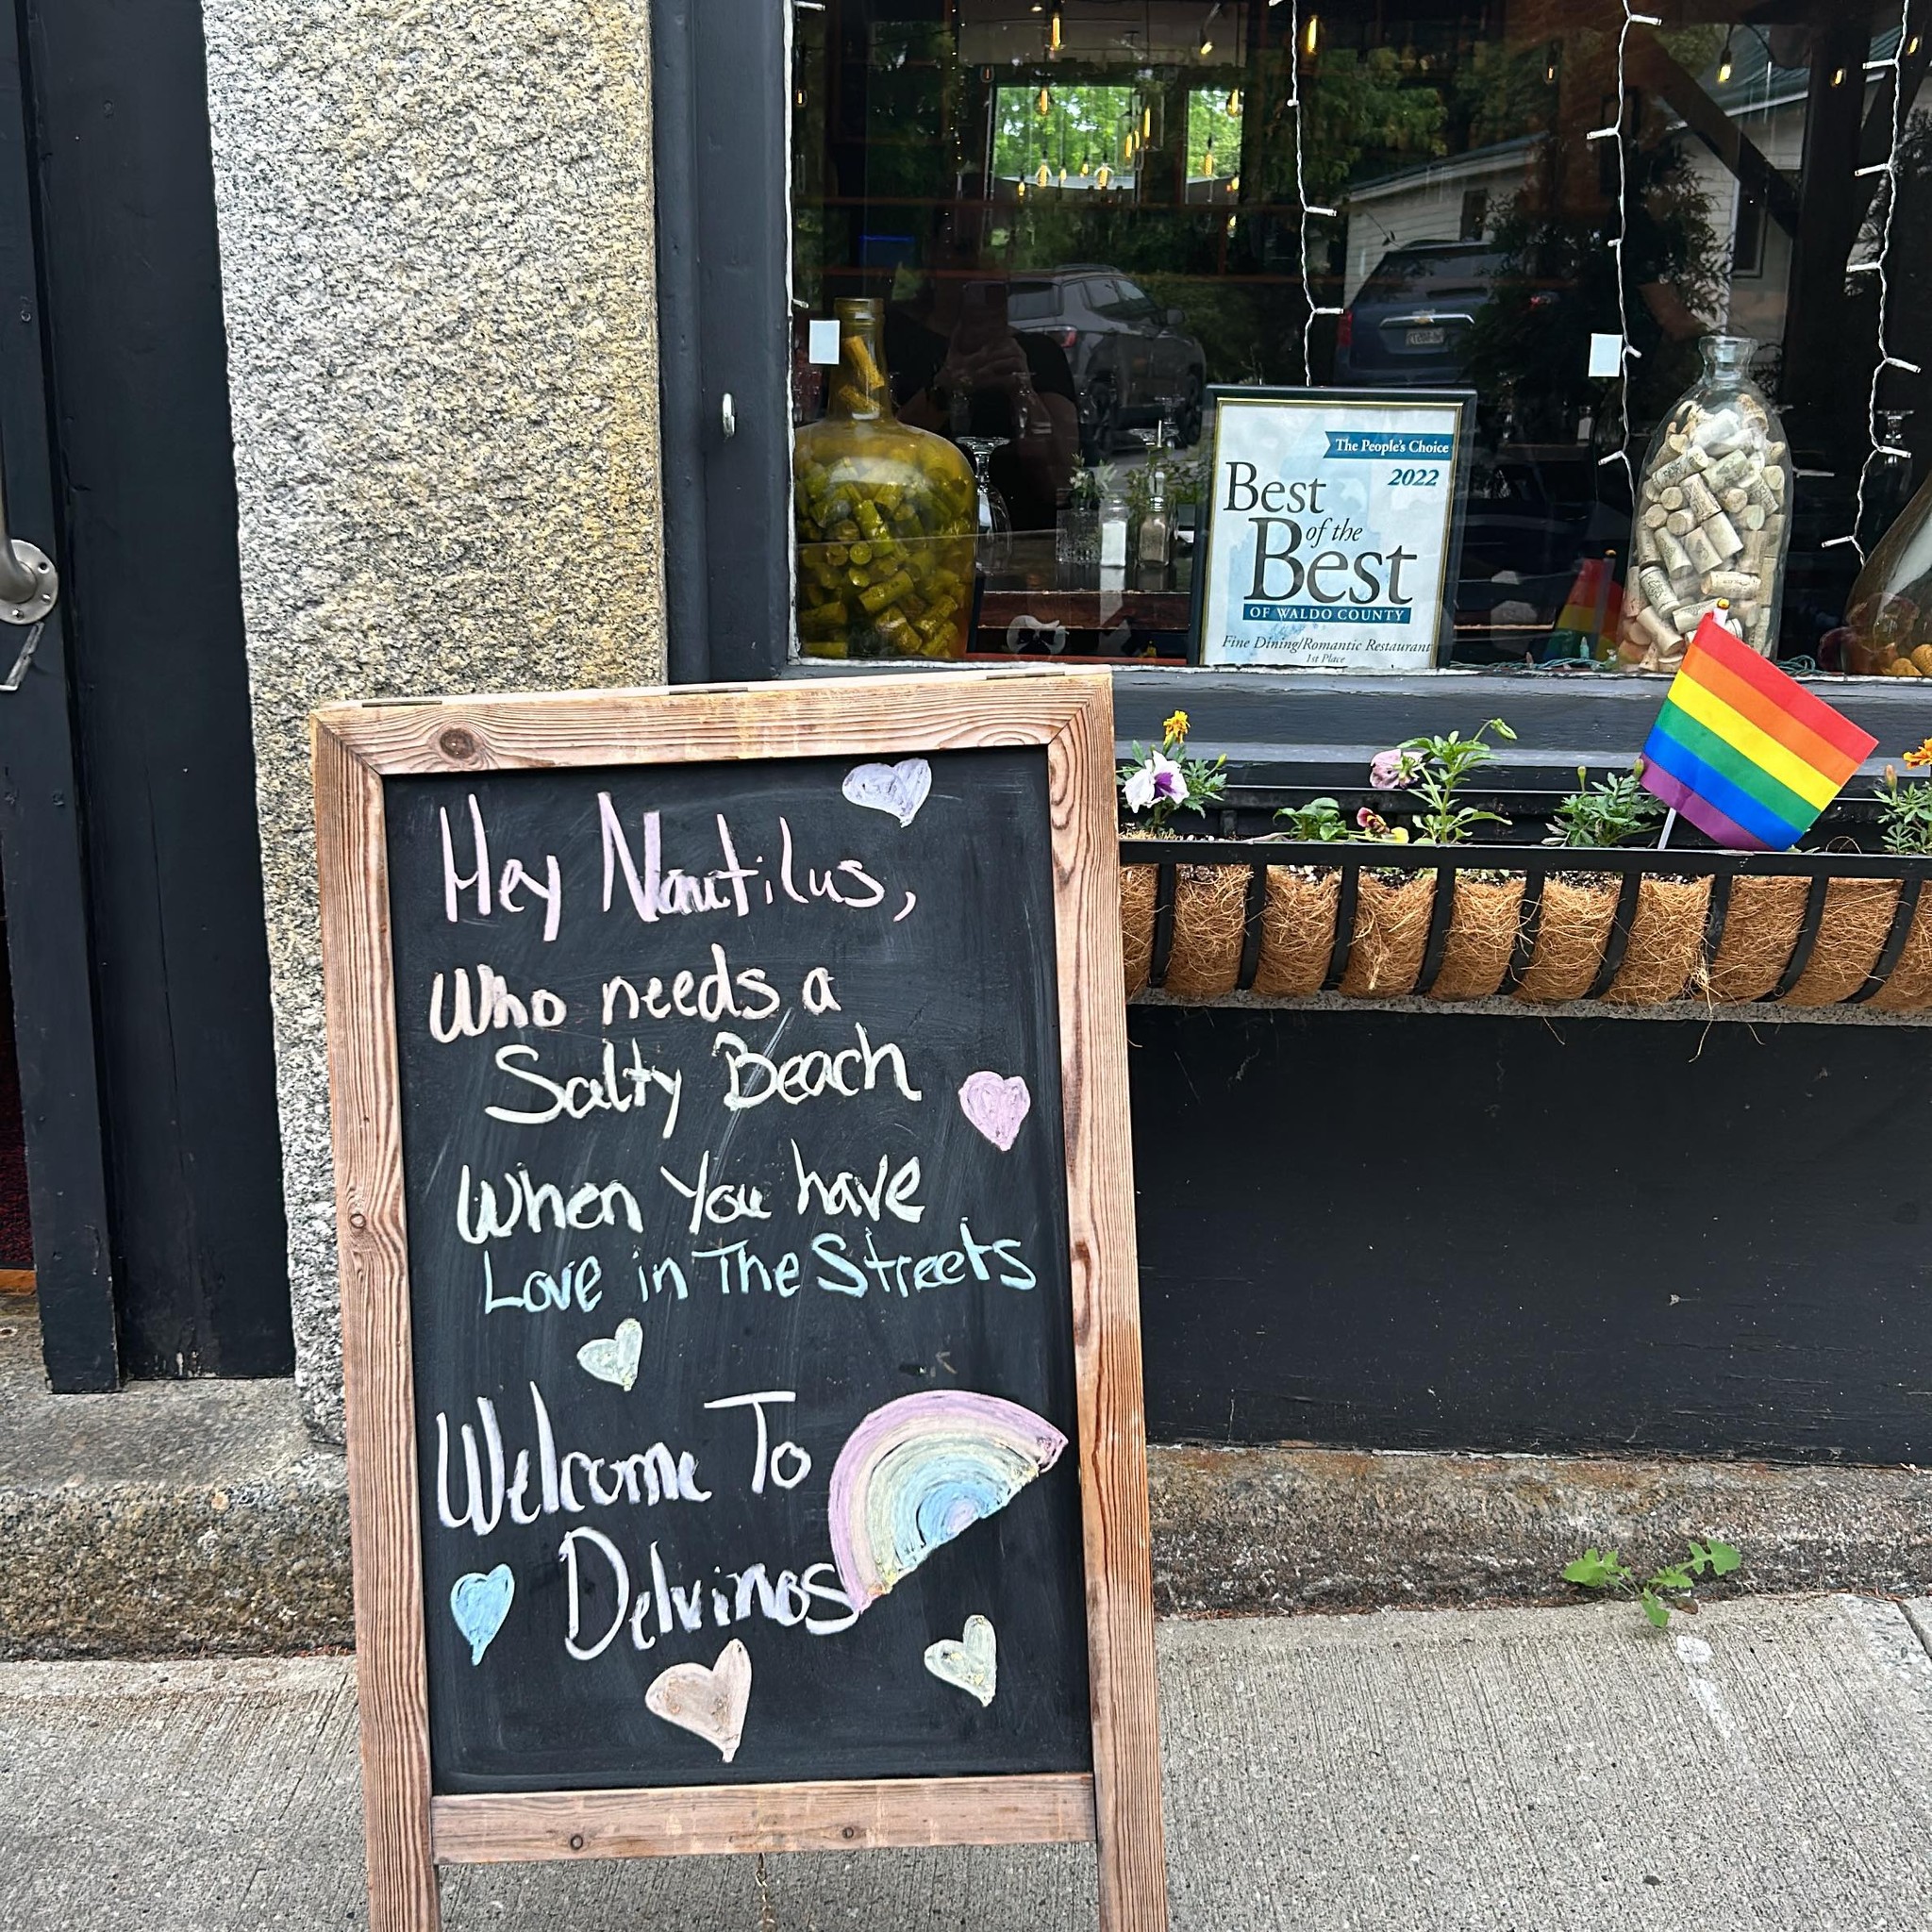 The People's Choice
2022
Best
of the
Best
OF WALDO COUNTY
Fine Dining/Romantic Restaurant
1st Place
Hey Nautilus,
Who needs a
Salty Beach
When You have
Love in The Streets
Welcome To
Delvinos